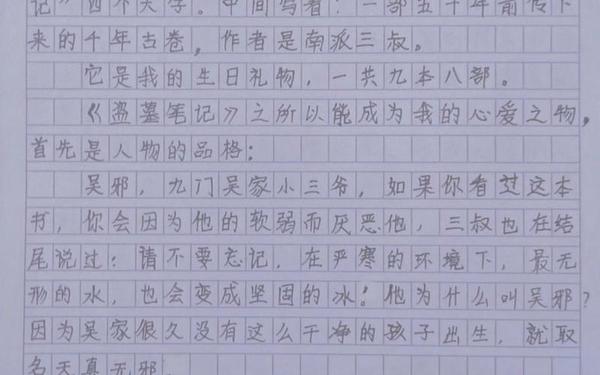 记》四个大字。中间写着:一部五十年前传下
来的千年古卷,作者是南派三叔。
它是我的生日礼物,一共九本八部。
《盗墓笔记》之所以能成为我的心爱之物,
首先是人物的品格:
吴邪,九门吴家小三爷,如果你看过这本
书,你会因为他的软弱而厌恶他,三叔也在结
尾说过:请不要忘记,在严寒的环境下,最无
形的水,也会变成坚固的冰!他为什么叫吴邪?
因为吴家很久没有这么干净的孩子出生,就取
名天真无邪